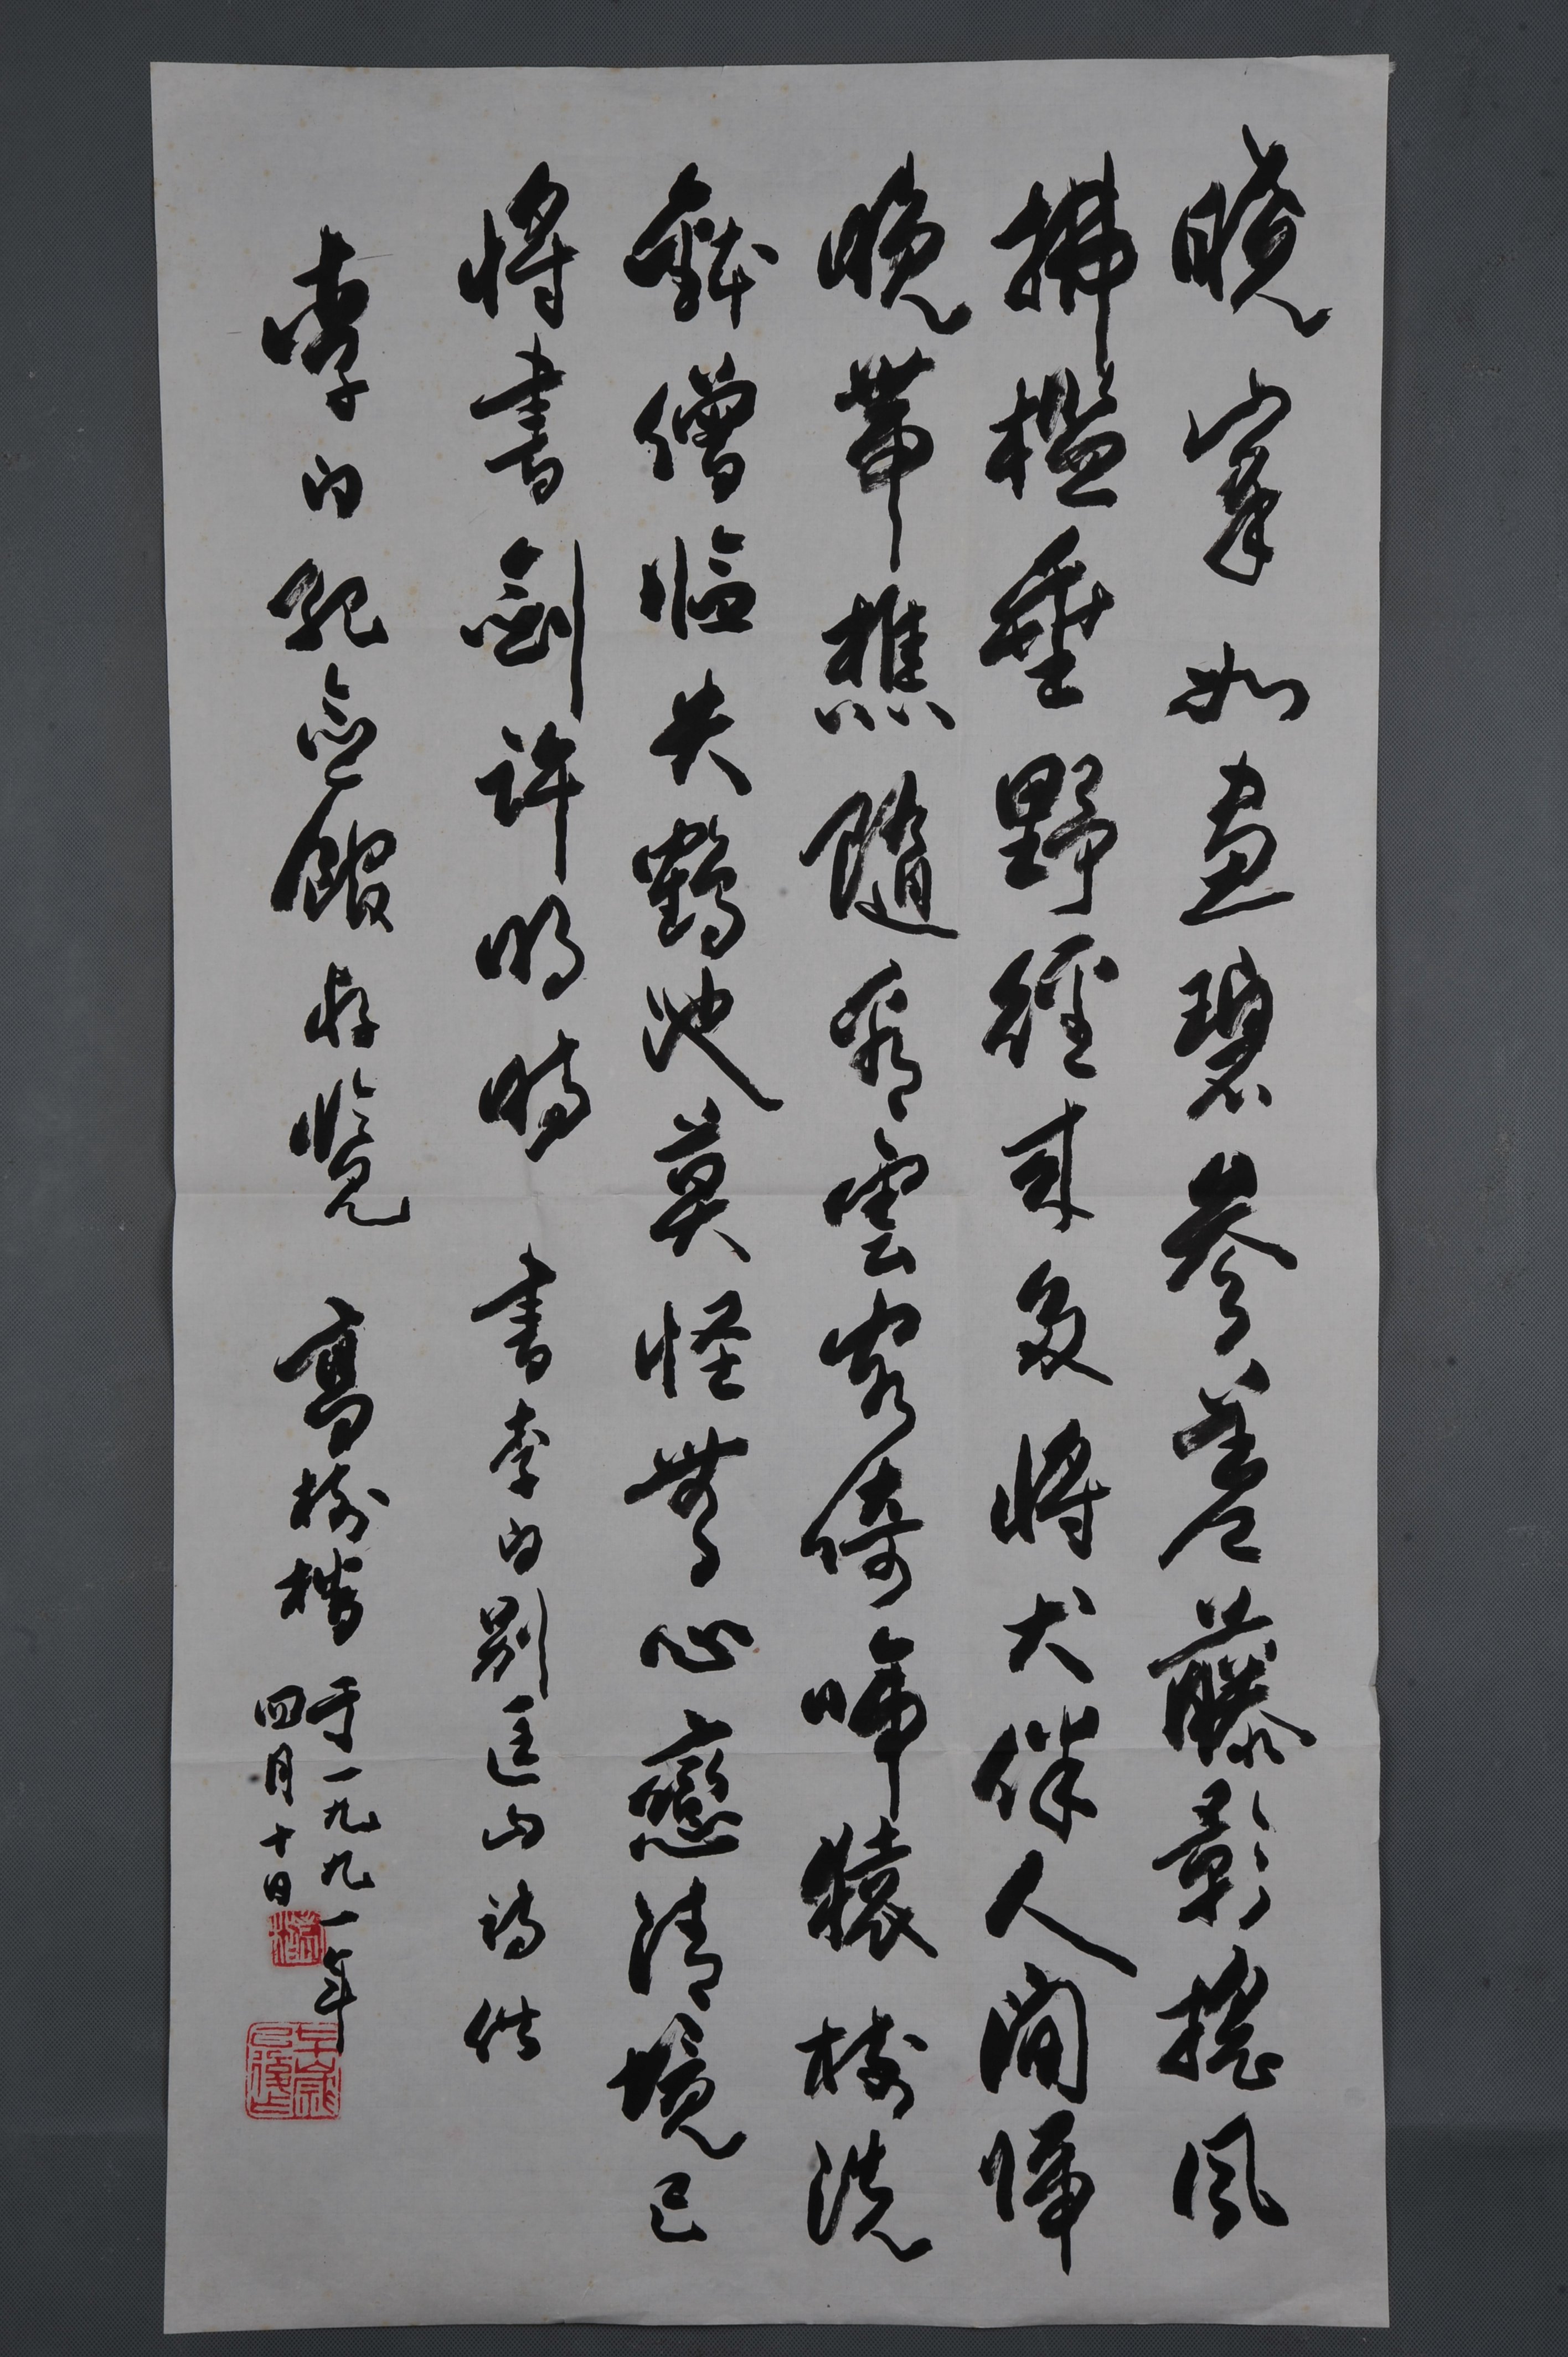 曉峯如畫碧參差藤影搖風
拂檻垂野徑來多將犬伴人間歸
晚帶樵隨看雲客倚啼猿樹洗
鉢僧臨失鶴池莫怪無心戀清境已
將書劍許明時 書李白別匡山詩供
李白紀念館存覽 高樹
于一九九一年
四月十日